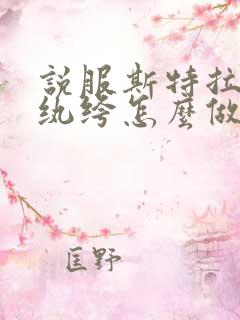 說服斯特拉
纨绔怎麼做
匡野